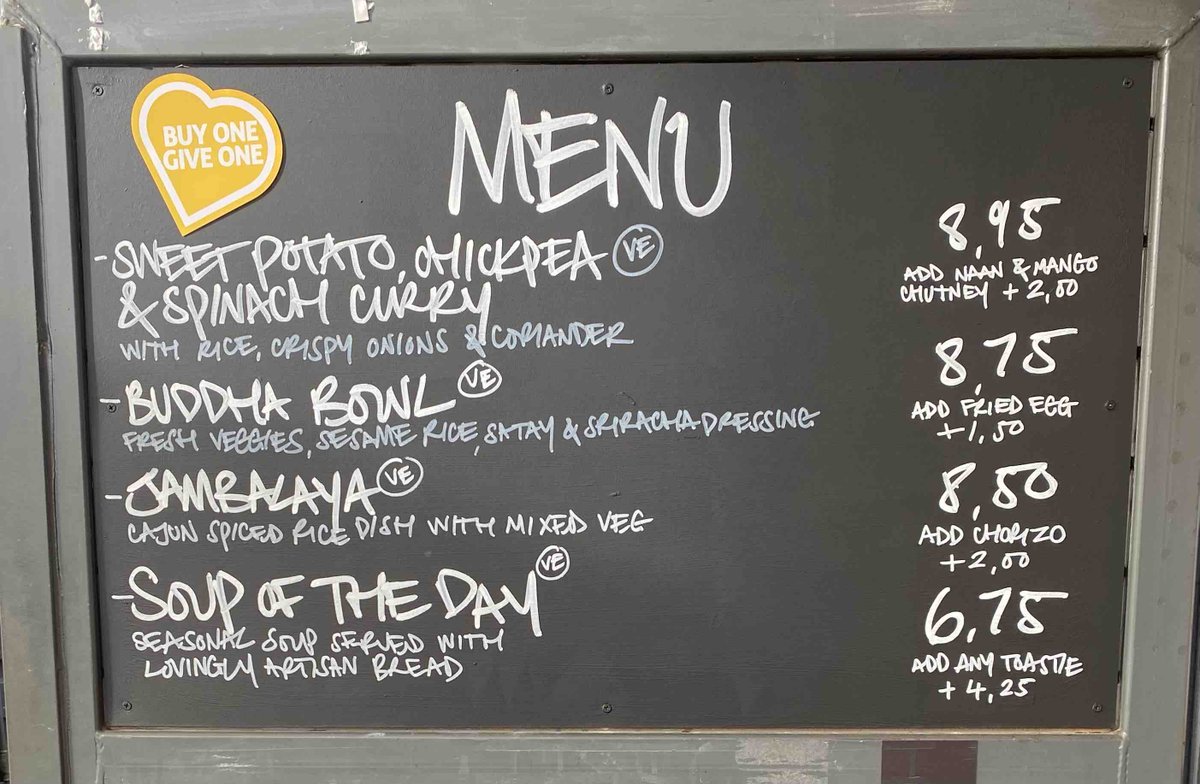 BUY ONE
GIVE ONE
MENU
- SWEET POTATO, CHICKPEA VE
& SPINACH CURRY
WITH RICE, CRISPY ONIONS & CORIANDER
8,95
ADD NAAN & MANGO
CHUTNEY + 2,00
- BUDDHA BOWL VE
FRESH VEGGIES, SESAME RICE, SATAY & SRIRACHA DRESSING
8,75
ADD FRIED EGG
+ 1,50
- JAMBALAYA VE
CAJUN SPICED RICE DISH WITH MIXED VEG
8,50
ADD CHORIZO
+ 2,00
- SOUP OF THE DAY VE
SEASONAL SOUP SERVED WITH
LOVINGLY ARTISAN BREAD
6,75
ADD ANY TOASTIE
+ 4,25